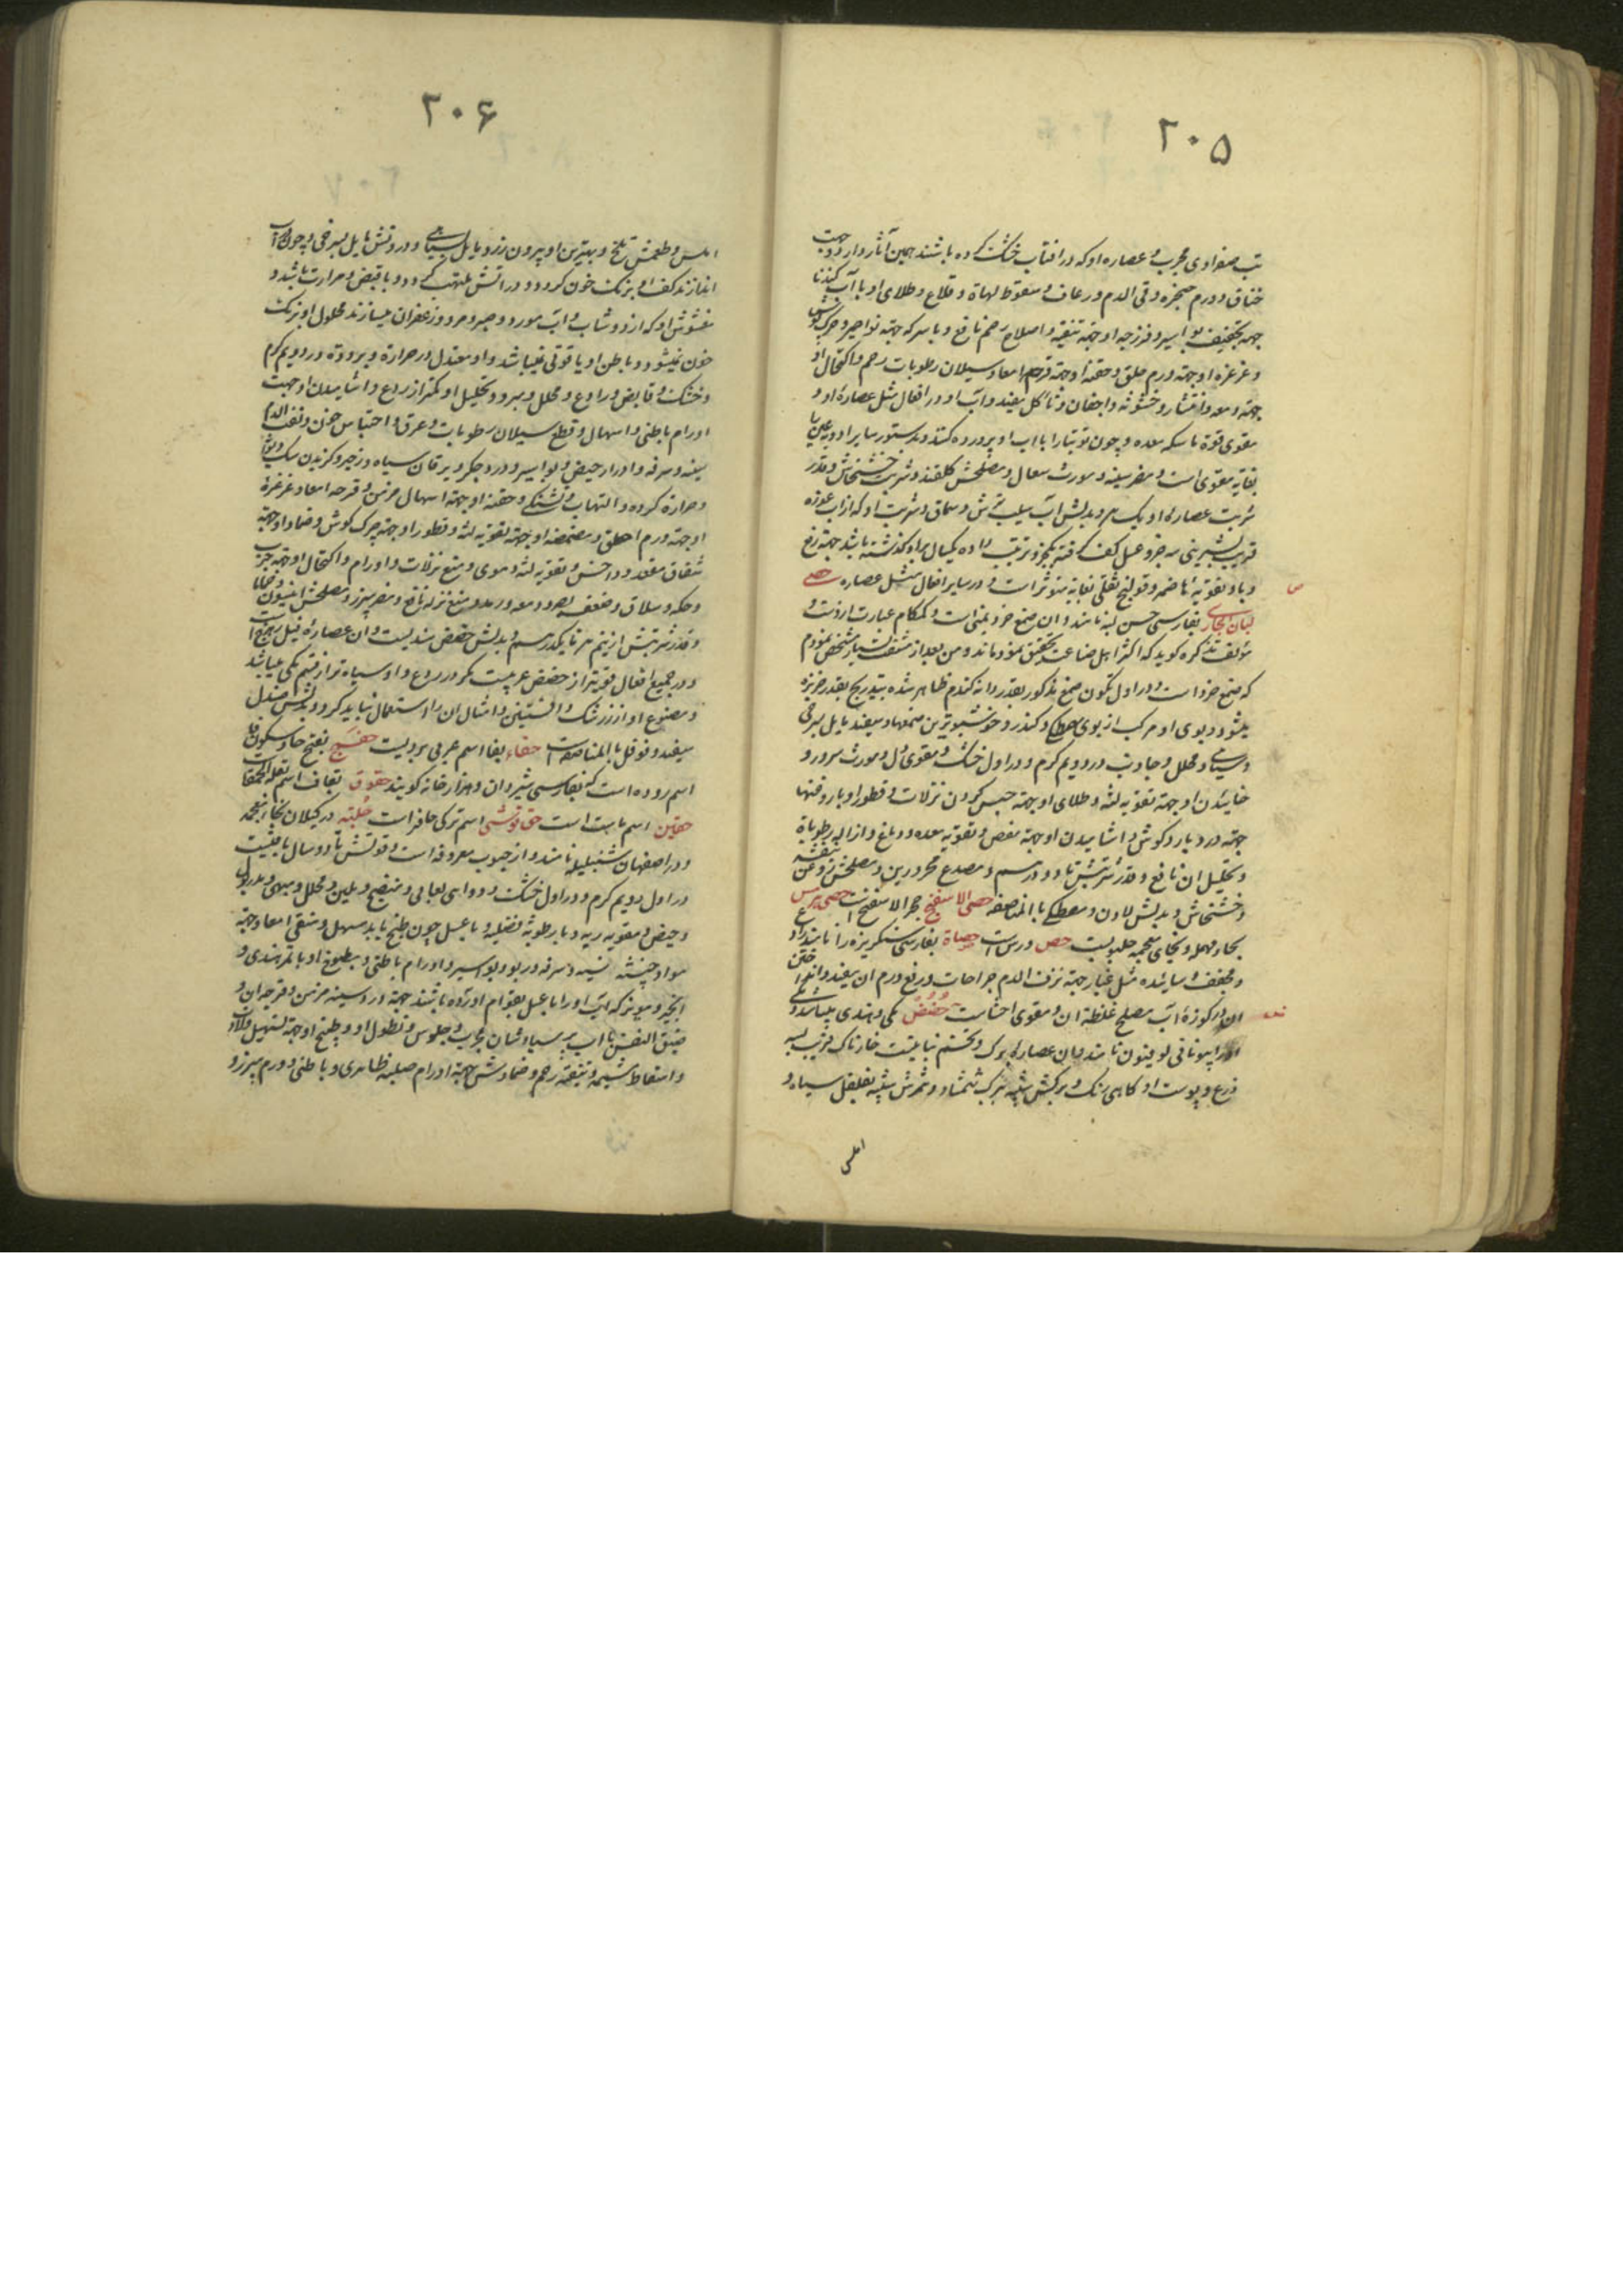 ۲۰۵
تب صفراوی مجرب و عصاره او که در افتاب خشک کرده باشند همین آثار دارد و جهت
خناق و ورم حنجره و قی الدم و رعاف و سقوط لهاة و قلاع و طلای او با آب گندنا
جهه تجفیف بواسیر و فرزجه او جهة تنقیه و اصلاح رحم نافع و با سرکه جهة نواصیر و چرک گوش
و غرغره او جهة ورم حلق و حقنه او جهة قرحه امعا و سیلان رطوبات رحم و اکتحال او
جهة دمعه و انتشار و خشونة و اجفان و تآکل مفید و آب او در افعال مثل عصاره او و
مقوی قوة ماسکه معده و چون توتیا را با اب او پرورده کنند و بدستور سایر ادویه عین را
بغایه مقوی است و مضر سینه و مورث سعال و مصلحش گلقند و شربت خشخاش و قدر
شربت عصاره او یک و بدلش آب سیب ترش و سماق و شربت او که از اب غوره
قریب بشیرینی سه جزو عسل کف گرفته یکجزو ترتیب داده یکسال براو گذشته باشد جهة رفع
وبا و تقویة هاضمه و قولنج ثقلی بغایة مؤثر است و در سایر افعال مثل عصاره حصی
لبان الجاوی بفارسی حسن لبه نامند و ان صمغ ضرو یمنی است و کمکام عبارت ازوست و
مؤلف تذکره گوید که اکثر اهل صناعت تحقیق ننموده‌اند و من بعد از بسیار مشخص نمودم
که صمغ ضرو است و در اول تکون صمغ مذکور بقدر دانه گندم ظاهر شده بتدریج بقدر خربزه
میشود و بوی او مرکب از بوی مصطکی و کندر و خوشبوترین صمغها و سفید مایل بسرخی
و سیاهی و محلل و جاذب و در دویم گرم و در اول خشک و مقوی دل و مورث سرور و
خائیدن او جهة تقویه لثه و طلای او جهة حبس کردن نزلات و قطور او با روغنها
جهة درد بارد گوش و اشامیدن او جهة مغص و تقویه معده و دماغ و ازاله رطوباة
و تحلیل ان نافع و قدر شربتش تا دو درهم و مصدع محرورین و مصلحش روغن بنفشه
و خشخاش و بدلش لادن و مصطکی بالمناصفه حصی الاسفنج حجر الاسفنج است
بحاء مهمله و بخای معجمه حص ورس است حصاة بفارسی سنگریزه را نامند
و مجفف و سائیده مثل غبار جهة نزف الدم جراحات و رفع ورم ان مفید و انداختن
ان در کوزه آب مصلح غلظة ان و مقوی احشاست حضض مکی و هندی میباشد و
او را بیونانی لوفیون نامند و ان عصاره برک و تخم نباتیست خارناک قریب بسه
ذرع و پوست او کاهی رنگ و برگش شبیه ببرک شمشاد و ثمرش شبیه بفلفل سیاه و
املس
۲۰۶
املس و طعمش تلخ و بهترین او بیرون زرد مایل بسیاهی و درونش مایل بسرخی و چون در آب
اندازند کف او برنک خون گردد و در اتش ملتهب گردد و با قبض و مرارت باشد و
مغشوش او که از دوشاب و آب مورد و صبر و مر و زعفران میسازند محلول او برنک
خون نمیشود و باطن او یاقوتی نمیباشد و او معتدل در حرارة و برودة و در دویم گرم
و خشک و قابض و رادع و محلل و مبرد و تحلیل او کمتر از ردع و اشامیدن او جهت
اورام باطنی و اسهال و قطع سیلان رطوبات و عرق و احتباس خون و نفث الدم
سینه و سرفه و ادرار حیض و بواسیر و درد جگر و یرقان سیاه و زحیر و گزیدن سک دیوانه
و حرارة گرده و التهاب و تشنگی و حقنه او جهة اسهال مزمن و قرحه امعا و غرغره
او جهة ورم حلق و مضمضه او جهة تقویه لثه و قطور او جهة چرک گوش و ضماد او جهة
شقاق مقعد و داخس و تقویه لثه و موی و منع نزلات و اورام و اکتحال او جهة جرب
و حکه و سلاق و ضعف بصر و دمعه و رمد و منع نزله نافع و مضر سپرز و مصلحش انیسون
و قدر شربتش از نیم درهم تا یکدرهم و بدلش حضض هندیست و ان عصاره فیل زهرج است
و در جمیع افعال قویتر از حضض عربیست مگر در ردع و او سیاه‌تر از قسم مکی میباشد
و مصنوع او از زرشک و افسنتین و امثال ان را استعمال نباید کرد و بدلش صندل
سفید و فوفل بالمناصفه است حفاء بفا اسم عربی بردیست حفسج بفتح حا و سکون فا
اسم روده است که بفارسی شیردان و هزارخانه گویند حقوق بقاف اسم بقلة الحمقا
حقین اسم ماست است حق قوشی اسم ترکی حافر است حلبة در گیلان
و در اصفهان شنبلیله نامند و از حبوب معروفه است و قوتش تا دو سال باقیست
در اول دویم گرم و در اول خشک و دوای لعابی و منضج و ملین و محلل و مبهی و مدر بول
و حیض و مقویه ریه و با رطوبة فضلیه و با عسل چون طبخ یابد مسهل و منقی امعا و جهة
مواد سینه و سرفه و ربو و بواسیر و اورام باطنی و مطبوخ او با تمر هندی و
انجیر و مویز که آب او را با عسل بقوام اورده باشند جهة درد سینه مزمن و قرحه ان و
ضیق النفس با آب مجرب و جلوس و نطول او و طبخ او جهة تسهیل ولادت
و اسقاط مشیمه و تنقیه رحم و ضمادش جهة اورام صلبه ظاهری و باطنی و ورم سپرز و